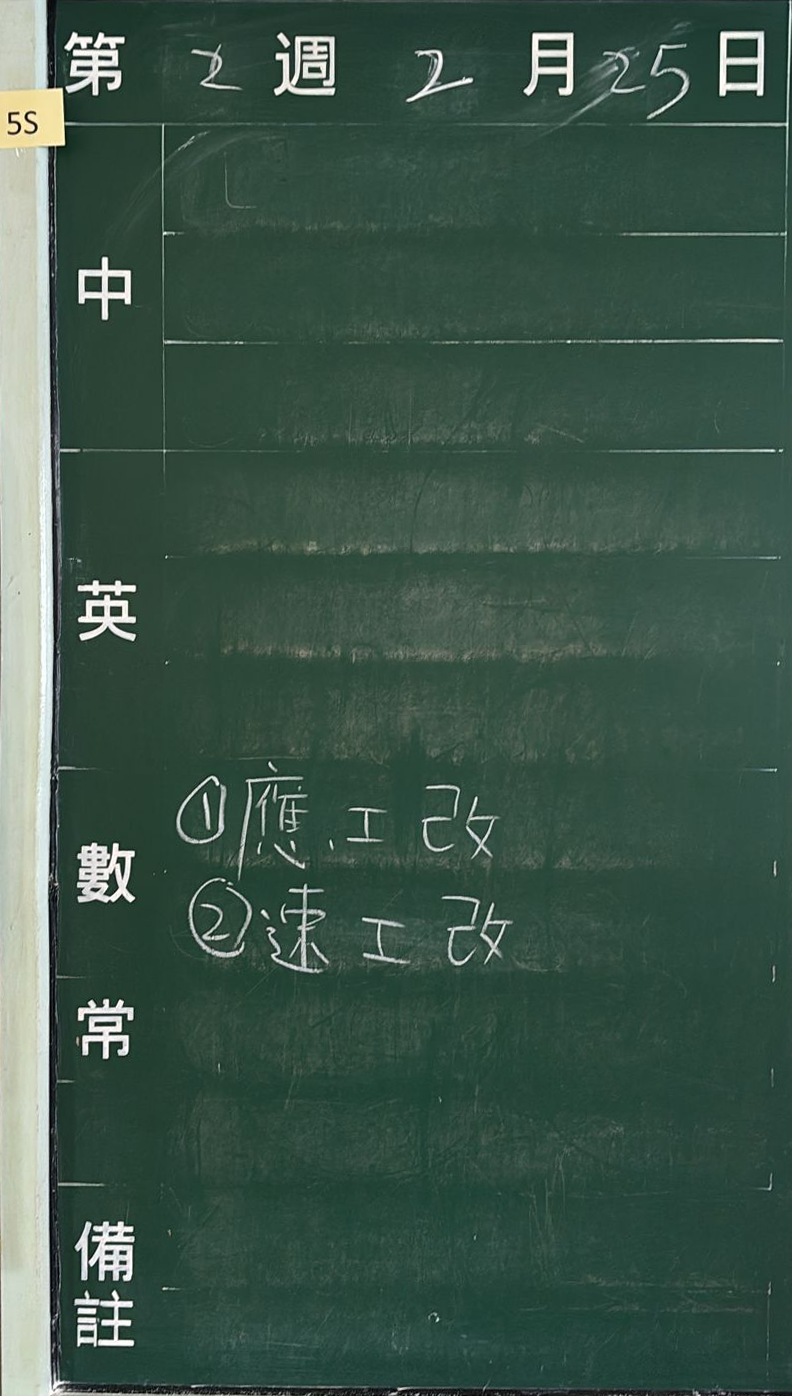 第 2 週 2 月 25 日
5S
中
英
數
①應.工 改
②速 工 改
常
備註